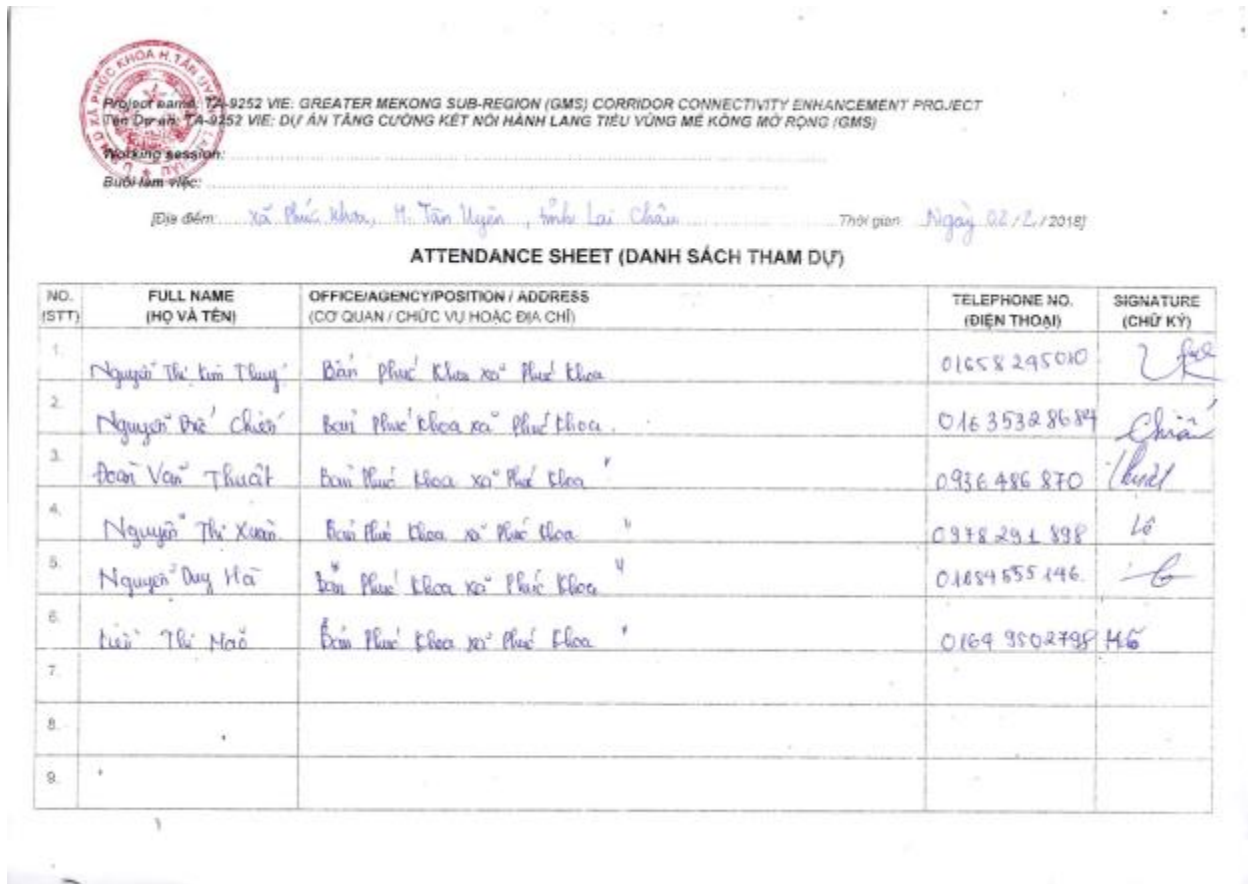 XÃ PHÚC KHOA H. TÂN UYÊN
Project name: TA-9252 VIE: GREATER MEKONG SUB-REGION (GMS) CORRIDOR CONNECTIVITY ENHANCEMENT PROJECT
Tên Dự án: TA-9252 VIE: DỰ ÁN TĂNG CƯỜNG KẾT NỐI HÀNH LANG TIỂU VÙNG MÊ KÔNG MỞ RỘNG (GMS)
Working session:
Buổi làm việc:
[Địa điểm: xã Phúc Khoa, H. Tân Uyên, tỉnh Lai Châu Thời gian: Ngày 02/2/2018]
ATTENDANCE SHEET (DANH SÁCH THAM DỰ)
NO. FULL NAME OFFICE/AGENCY/POSITION / ADDRESS TELEPHONE NO. SIGNATURE
(STT) (HỌ VÀ TÊN) (CƠ QUAN / CHỨC VỤ HOẶC ĐỊA CHỈ) (ĐIỆN THOẠI) (CHỮ KÝ)
1. Nguyễn Thị Kim Thuý Bản Phúc Khoa xã Phúc Khoa 01658245010
2. Nguyễn Chiến Bản Phúc Khoa xã Phúc Khoa. 01635328684 Chiến
3. Đoàn Văn Thuật Bản Phúc Khoa xã Phúc Khoa " 0936486870 Thuật
4. Nguyễn Thị Xuân Bản Phúc Khoa xã Phúc Khoa " 0978291898
5. Nguyễn Duy Hà Bản Phúc Khoa xã Phúc Khoa " 01684555146
6. Thị Bản Phúc Khoa xã Phúc Khoa " 01649502798
7.
8.
9.